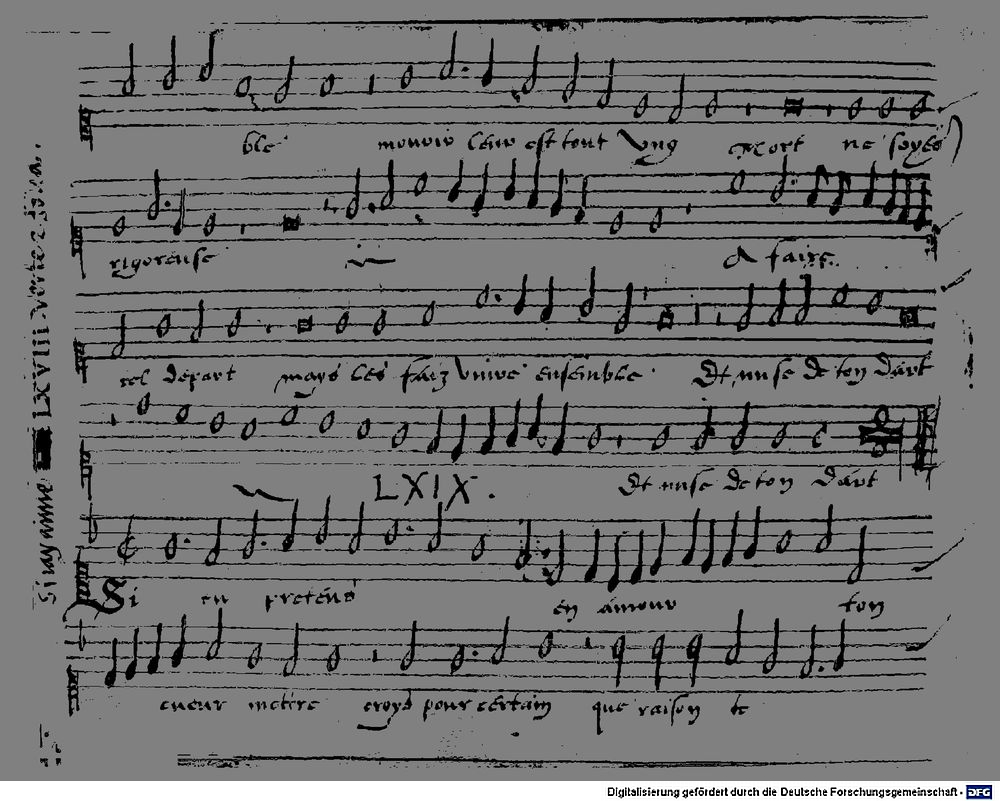 ble mouvoir leur est tout ung Mort ne soyes
rigoreuse A faire
tel depart mays les faiz vivre ensemble Et nuse de ton dart
LXIX. Et nuse de ton dart
Si en pretens en amour ton
cueur metire croys pour certain que raison te
LXVIII
Digitalisierung gefördert durch die Deutsche Forschungsgemeinschaft - DFG